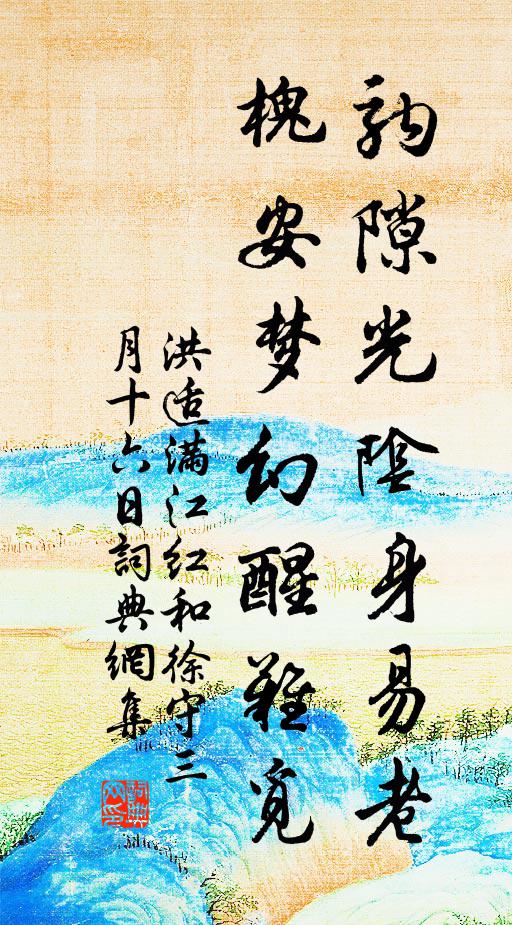 駒隙光陰身易老
槐安梦幻醒難覓
洪适满江红和徐守三
月十六日詞典網集